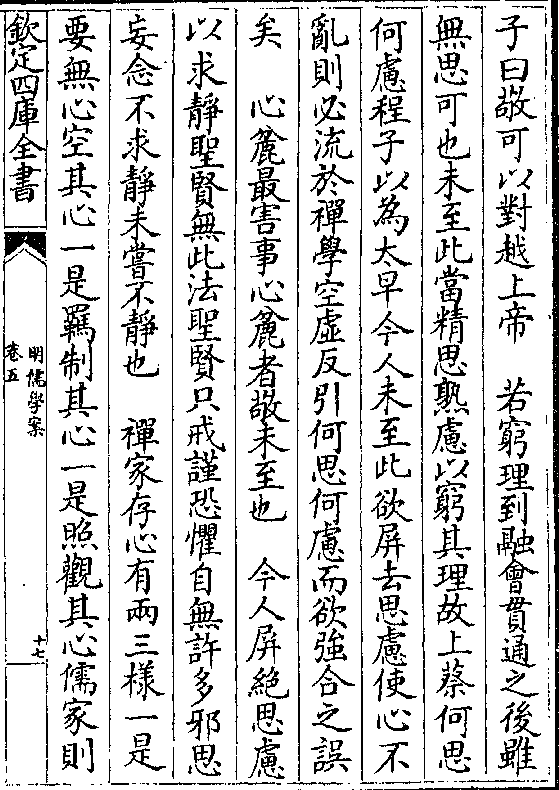 子曰敬可以對越上帝　若窮理到融會貫通之後雖
無思可也未至此當精思熟慮以窮其理故上蔡何思
何慮程子以為太早今人未至此欲屏去思慮使心不
亂則必流於禪學空虛反引何思何慮而欲強合之誤
矣　心麄最害事心麄者敬未至也　今人屏絶思慮
以求靜聖賢無此法聖賢只戒謹恐懼自無許多邪思
妄念不求靜未嘗不靜也　禪家存心有兩三樣一是
要無心空其心一是羈制其心一是照觀其心儒家則
欽定四庫全書
明儒學案
卷五
十七